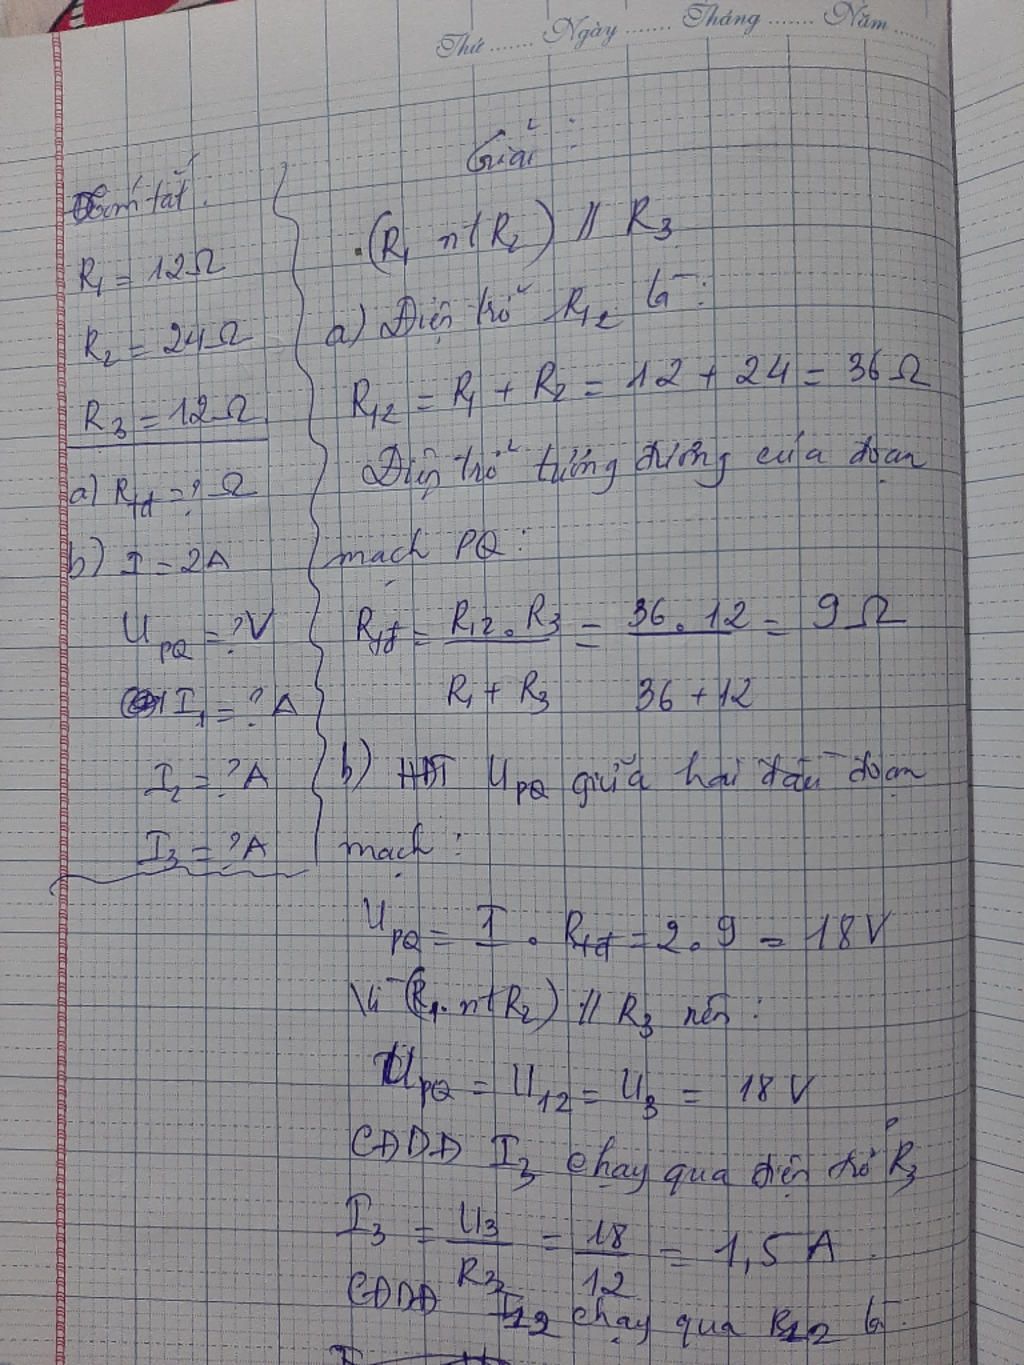 Thứ ....... Ngày ....... Tháng ....... Năm .......
Tóm tắt :
R₁ = 12Ω
R₂ = 24Ω
R₃ = 12Ω
a) Rtđ = ? Ω
b) I = 2A
U_PQ = ? V
I₁ = ? A
I₂ = ? A
I₃ = ? A
Giải :
(R₁ nt R₂) // R₃
a) Điện trở R₁₂ là :
R₁₂ = R₁ + R₂ = 12 + 24 = 36Ω
Điện trở tương đương của đoạn
mạch PQ :
Rtđ = R₁₂ . R₃ = 36 . 12 = 9Ω
R₁ + R₃ 36 + 12
b) HĐT U_PQ giữa hai đầu đoạn
mạch :
U_PQ = I . Rtđ = 2 . 9 = 18V
Vì (R₁ nt R₂) // R₃ nên :
U_PQ = U₁₂ = U₃ = 18V
CĐDĐ I₃ chạy qua điện trở R₃
I₃ = U₃ = 18 = 1,5A
R₃ 12
CĐDĐ I₁₂ chạy qua R₁₂ là :